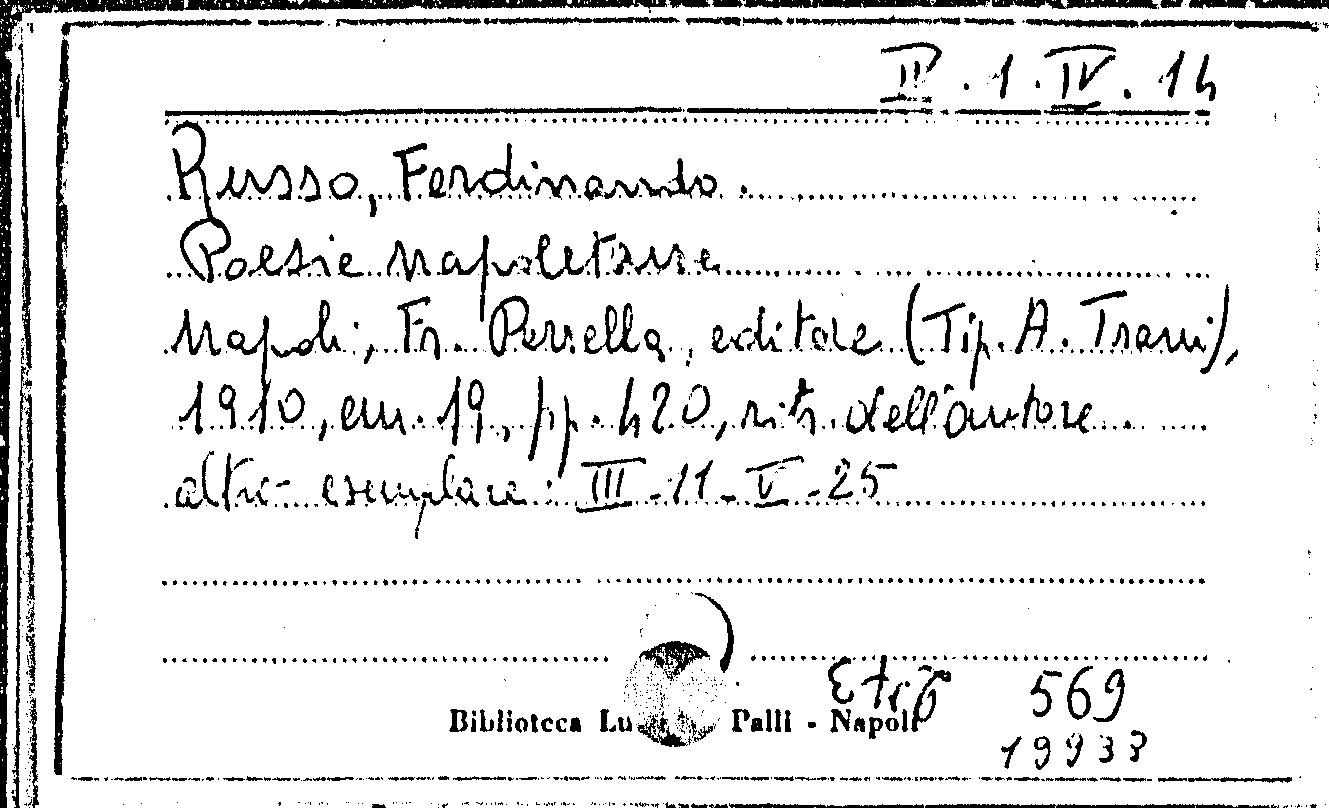 II . 1 . IV . 14
Russo, Ferdinando .
Poesie napoletane
Napoli, Fr. Perrella, editore (Tip. A. Trani),
1910, cm. 19, pp. 420, ritr. dell'autore .
altro esemplare : III - 11 - V - 25
569
Biblioteca Lu Palli - Napoli
19933